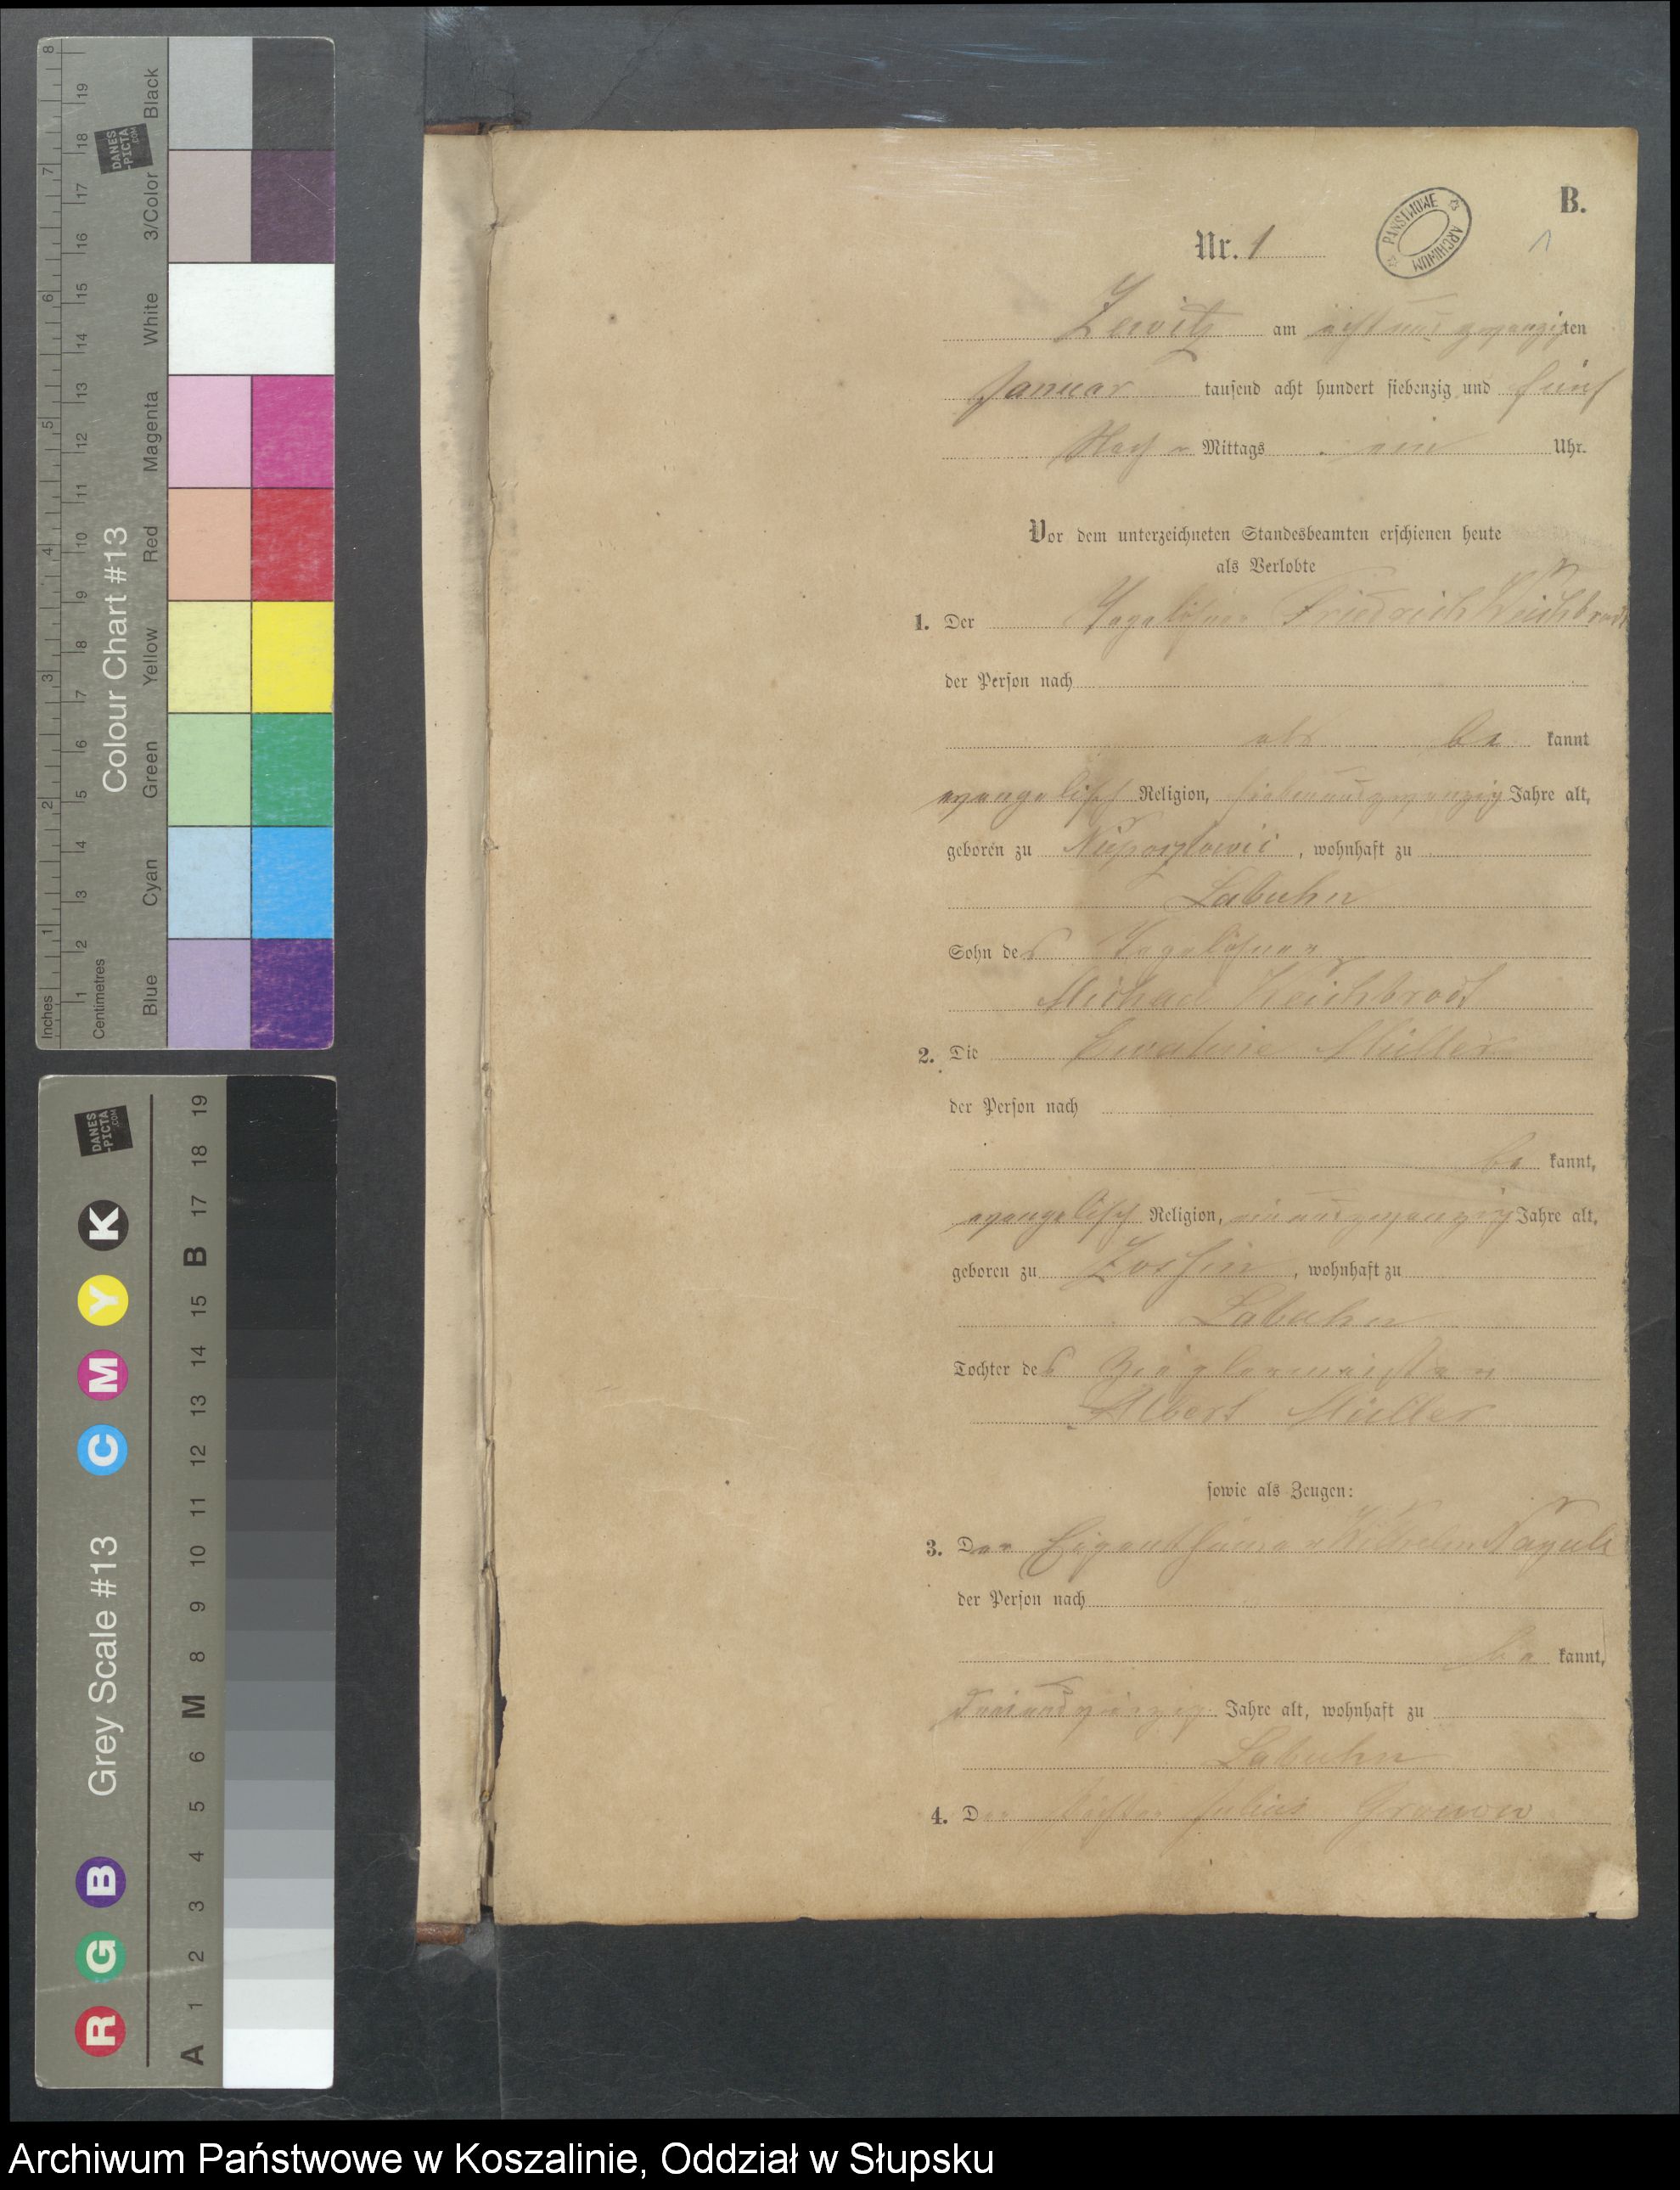 B.
Nr. 1
PAŃSTWOWE ARCHIWUM
1
Zewitz am acht und zwanzigten
Januar tausend acht hundert siebenzig und fünf
Nach Mittags ein Uhr.
Vor dem unterzeichneten Standesbeamten erschienen heute
als Verlobte
1. Der Tagelöhner Friedrich Weichbrodt
der Person nach
be kannt
evangelisch Religion, siebenundzwanzig Jahre alt,
geboren zu , wohnhaft zu
Labuhn
Sohn des Tagelöhner
Michael Weichbrodt
2. Die Müller
der Person nach
be kannt,
evangelisch Religion, einundzwanzig Jahre alt,
geboren zu , wohnhaft zu
Labuhn
Tochter des Zieglermeister
Albert Müller
sowie als Zeugen:
3. Der Eigenthümer Wilhelm
der Person nach
be kannt,
dreiundvierzig Jahre alt, wohnhaft zu
Labuhn
4. Der Julius
Inches
Centimetres
1 2 3 4 5 6 7 8
1 2 3 4 5 6 7 8 9 10 11 12 13 14 15 16 17 18 19
Colour Chart #13
Blue Cyan Green Yellow Red Magenta White 3/Color Black
DANES
-PICTA
.COM
R G B Grey Scale #13 C M Y K
DANES
-PICTA
.COM
A 1 2 3 4 5 6 M 8 9 10 11 12 13 14 15 B 17 18 19
Archiwum Państwowe w Koszalinie, Oddział w Słupsku